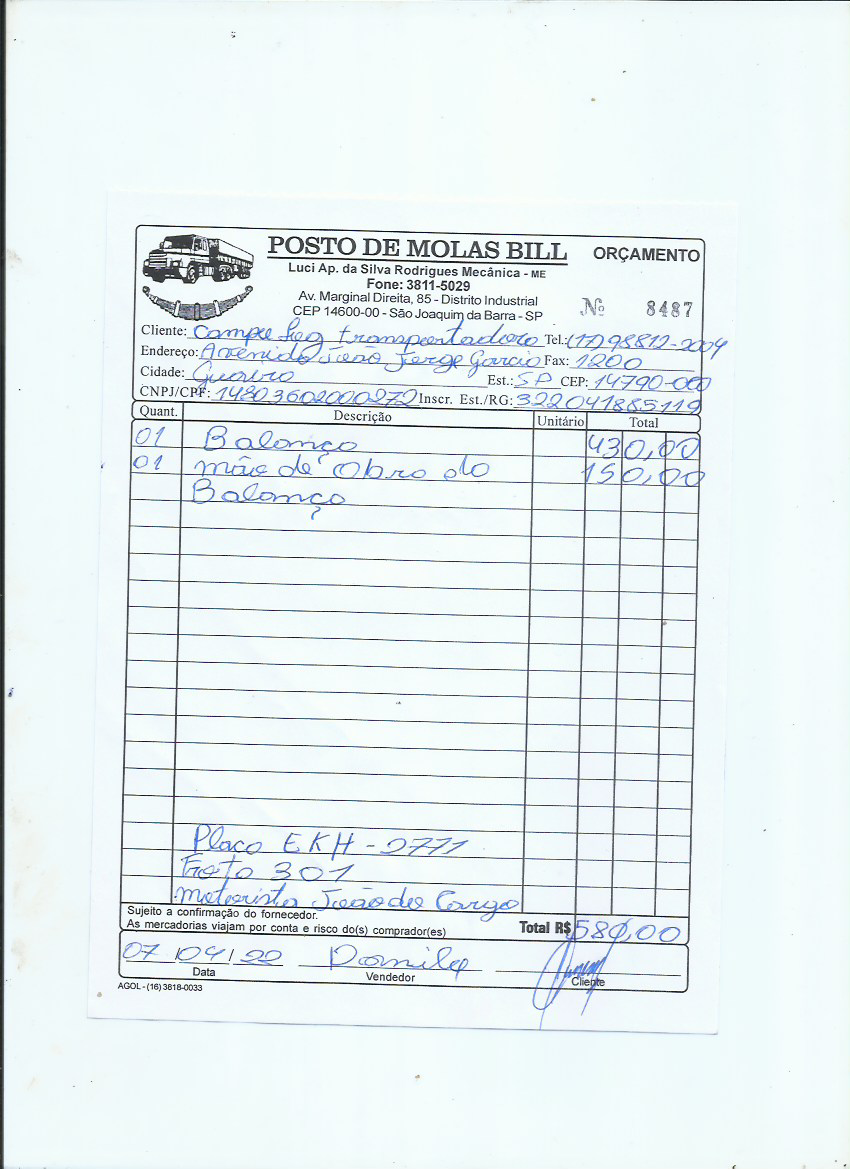 POSTO DE MOLAS BILL ORÇAMENTO
Luci Ap. da Silva Rodrigues Mecânica - ME
Fone: 3811-5029
Av. Marginal Direita, 85 - Distrito Industrial
CEP 14600-00 - São Joaquim da Barra - SP
Nº 8487
Cliente: Campe Leg transpertadora Tel.: (17) 98812-2004
Endereço: Avenida João Jorge Garcia Fax: 1200
Cidade: Guaira Est.: SP CEP: 14790-000
CNPJ/CPF: 14803602000272 Inscr. Est./RG: 322041885119
Quant. Descrição Unitário Total
01 Balanço 430,00
01 mão de obra do 150,00
Balanço
Placa EKH-2771
Frota 301
Motorista João de Cargo
Sujeito a confirmação do fornecedor.
As mercadorias viajam por conta e risco do(s) comprador(es) Total R$ 580,00
07/04/22
Data Vendedor Cliente
AGOL - (16) 3818-0033